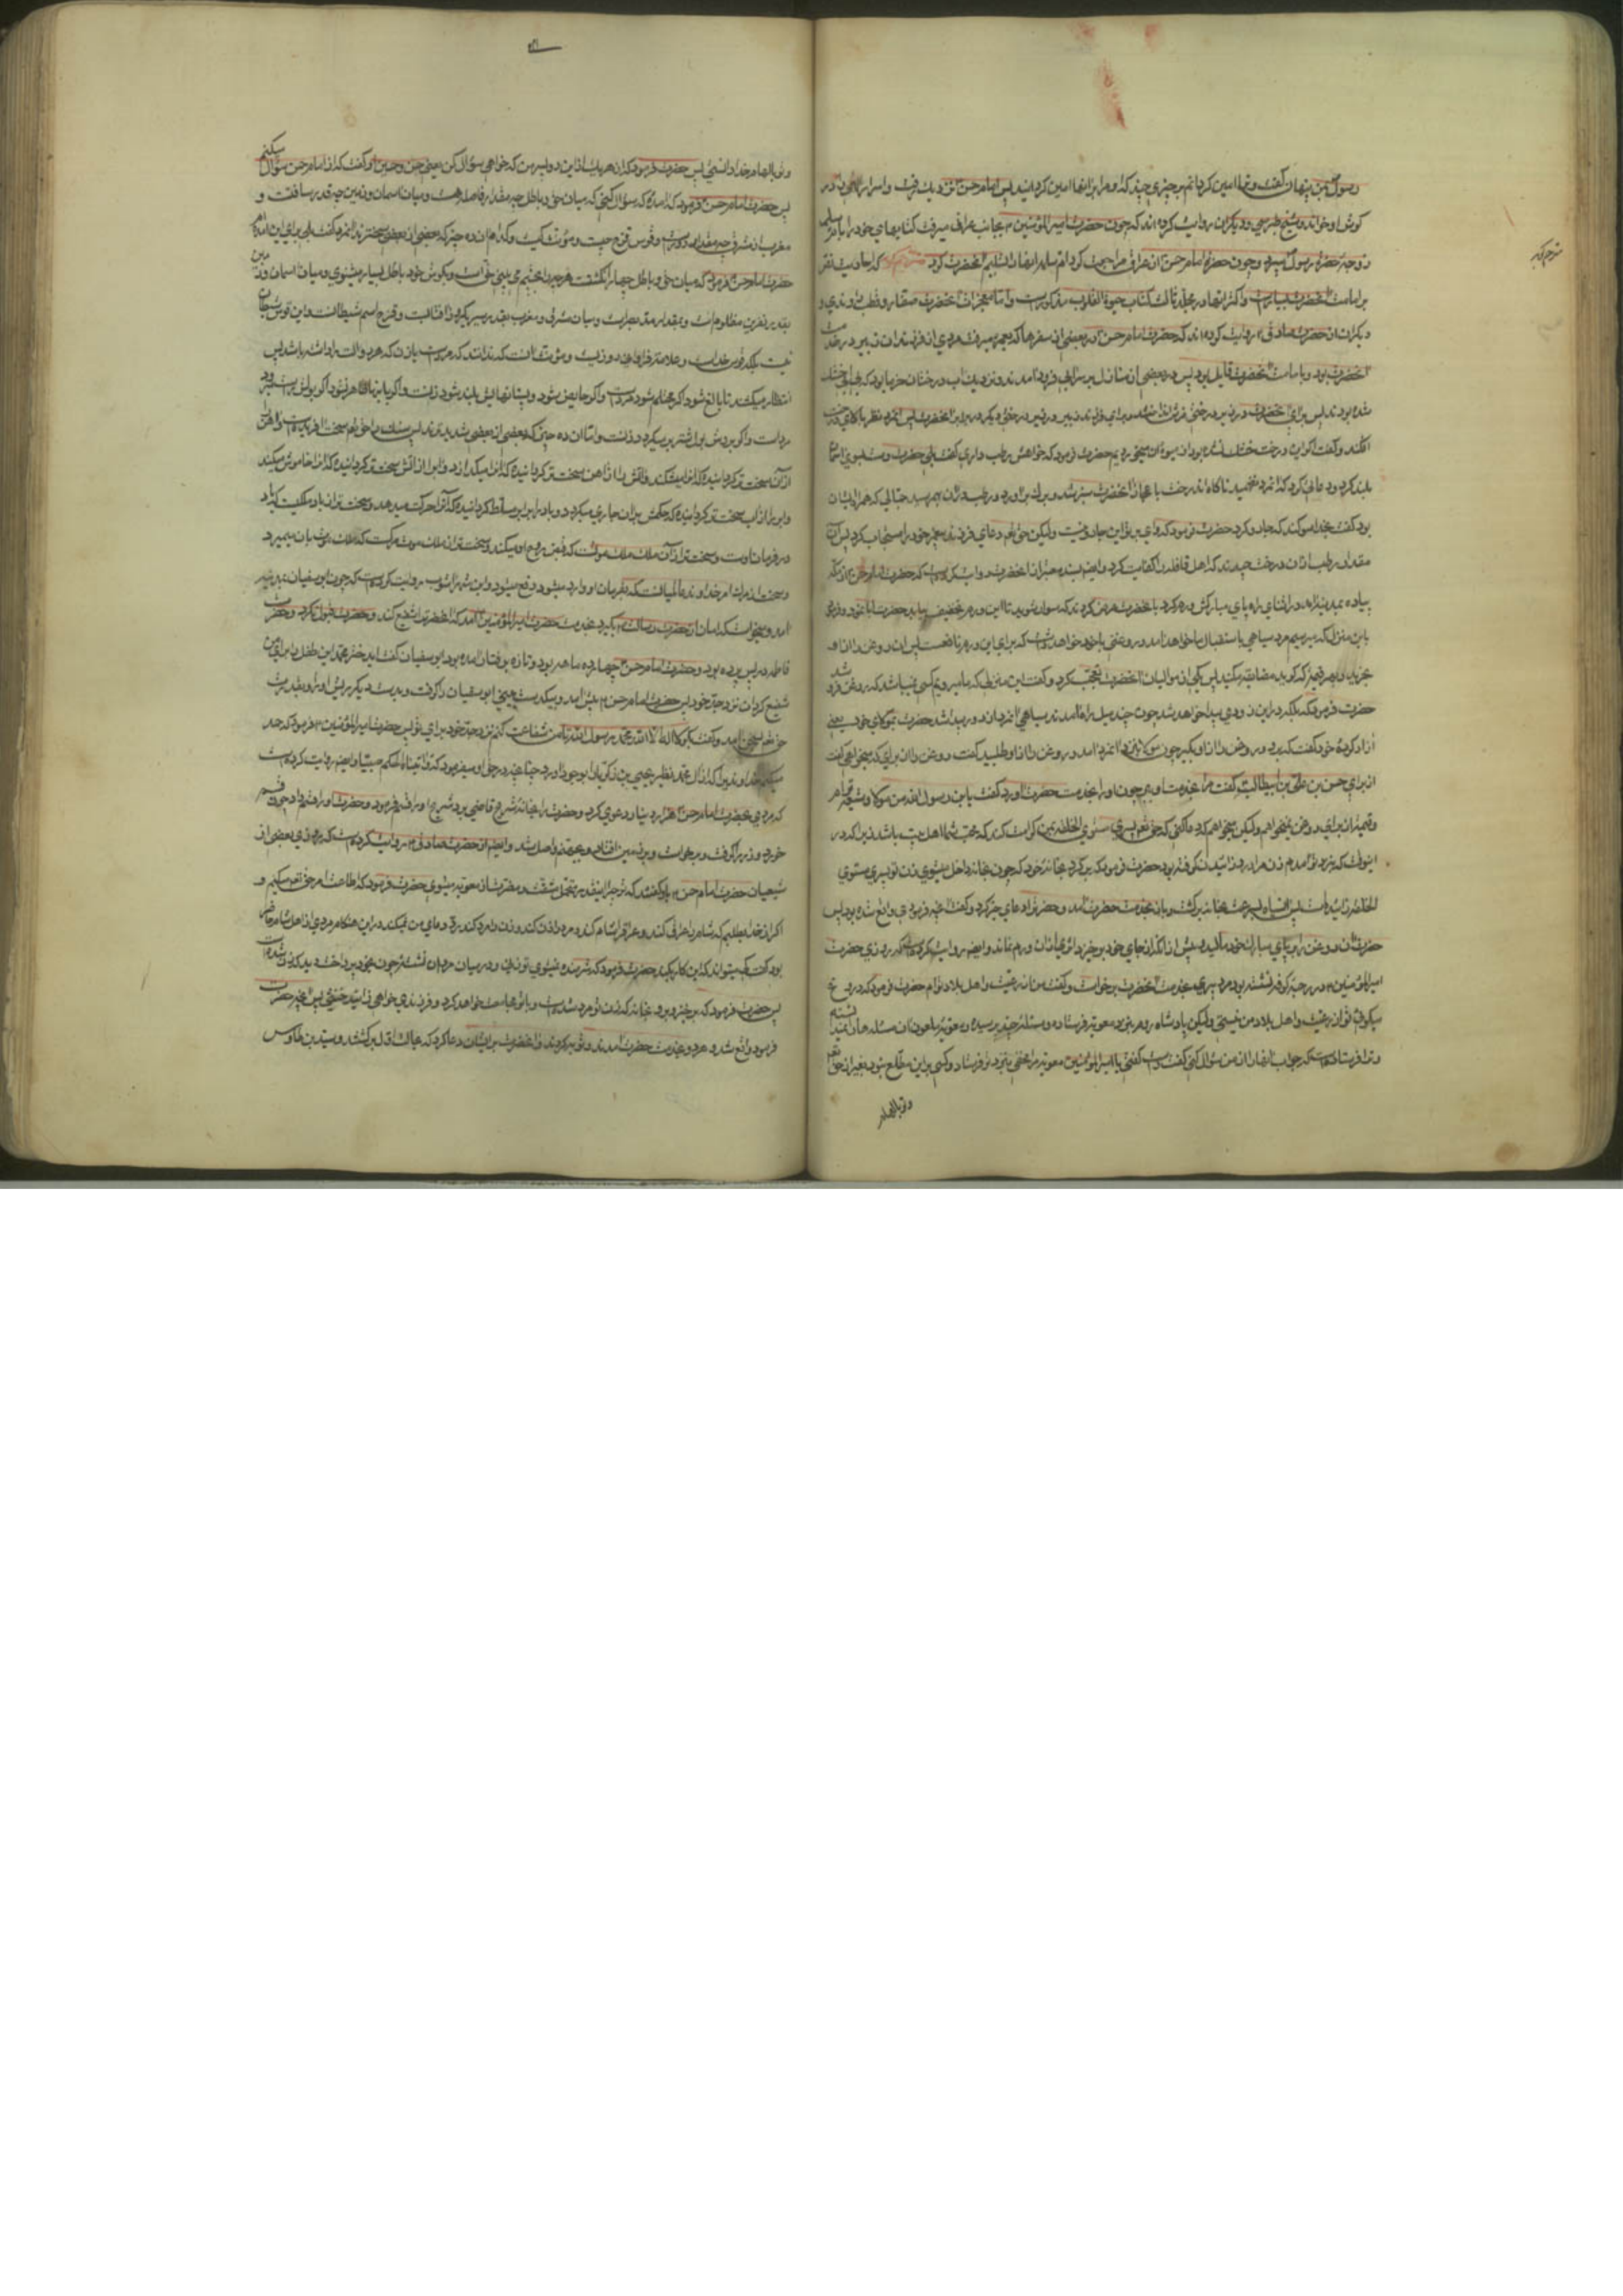 رسول بمن پنهان گفت و مرا امین گردانم بر چیزی چند که او مرا بر آنها امین گردانید پس امام حسن نزدیک رفت و اسرار در
گوش او خواند و شیخ طبرسی و دیگران روایت کرده اند که چون حضرت امیرالمؤمنین بجانب عراق میرفت کتابهای خود را بام سلمه
زوجه حضرت رسول سپرد و چون حضرت امام حسن از عراق مراجعت کرد ام سلمه آنها را تسلیم آنحضرت کرد مترجم گوید که احادیث نص
مترجم گوید
بر امامت آنحضرت بسیار است و اکثر آنها در مجلد ثالث کتاب حیوة القلوب مذکور است و اما معجزات آنحضرت صفار و قطب راوندی و
دیگران از حضرت صادق روایت کرده اند که حضرت امام حسن در بعضی از سفرها که بعمره میرفت مردی از فرزندان زبیر در خدمت
آنحضرت بود و بامامت آنحضرت قایل بود پس در بعضی از منازل بر سر آبی فرود آمدند و نزدیک آب درختان خرما بود که از بی آبی خشک
شده بودند پس برای آنحضرت در زیر درختی فرش انداختند و برای فرزند زبیر در زیر درختی دیگر در برابر آنحضرت پس آنمرد نظر ببالای درخت
افکند و گفت اگر این درخت خشک نشده بود از میوه آن میخوردیم حضرت فرمود که خواهش رطب داری گفت بلی حضرت دست بسوی آسمان
بلند کرد و دعائی کرد که آنمرد نفهمید ناگاه آندرخت باعجاز آنحضرت سبز شد و برگ برآورد و رطب در آن بهم رسید جمالی که همراه ایشان
بود گفت بخدا سوگند که جادو کرد حضرت فرمود که وای بر تو این جادو نیست ولیکن حق تعالی دعای فرزند پیغمبر خود را مستجاب کرد پس آن
مقدار رطب از آن درخت چیدند که اهل قافله را کفایت کرد و ایضا بسند معتبر از آنحضرت روایت کرده است که حضرت امام حسن از مکه
پیاده بمدینه آمد و در اثنای راه پای مبارکش ورم کرد بآنحضرت عرض کردند که سوار شوید تا این ورم تخفیف بیابد حضرت ابا نمود و فرمود
باین منزل که میرسیم مرد سیاهی باستقبال ما خواهد آمد و روغنی با خود خواهد داشت که برای این ورم نافعست پس آن روغن را از او
بخرید و در قیمت هر چه گوید مضایقه مکنید پس یکی از موالیان آنحضرت تعجب کرد و گفت این منزلی که ما میرویم کسی نمیباشد که روغن فروشد
حضرت فرمود که بلکه در این زودی پیدا خواهد شد چون چند میل راه آمدند سیاهی از دور پیدا شد حضرت بمولای خود یعنی
آزاد کرده خود گفت که برو و روغن را از او بگیر چون مولا بنزد آنمرد آمد و روغن را از او طلبید گفت روغن را از برای که میخواهی گفت
از برای حسن بن علی بن ابیطالب گفت مرا بخدمت او ببر چون او را بخدمت حضرت آورد گفت یابن رسول الله من مولا و شیعه توام
و قیمت از برای روغن نمیخواهم ولیکن میخواهم که دعا کنی که حق تعالی پسری مستوی الخلقه بمن کرامت کند که محب شما اهل بیت باشد زیرا که در
اینوقت که بنزد تو آمدم زن مرا درد زائیدن گرفته بود حضرت فرمود که برگرد بخانه خود که چون بخانه داخل میشوی زن تو پسری مستوی
الخلقه زائیده است پس آن سیاه بسرعت بخانه برگشت و باز بخدمت حضرت آمد و حضرت را دعای خیر کرد و گفت آنچه فرمودی واقع شده بود پس
حضرت آن روغن را بر پای مبارک خود مالید و پیش از آنکه از جای خود برخیزد اثری از آن ورم نماند و ایضا روایت کرده است که روزی حضرت
امیرالمؤمنین در رحبه کوفه نشسته بود مردی بخدمت آنحضرت برخواست و گفت من از رعیت و اهل بلاد توام حضرت فرمود که دروغ
میگوئی تو از رعیت و اهل بلاد من نیستی ولیکن پادشاه روم بنزد معویه فرستاده و مسئله چند پرسیده و معویه ملعون آن مسئله ها را نمیدانسته
و ترا فرستاده است که جواب آنها را از من سؤال کنی گفت راست گفتی یا امیرالمؤمنین معویه مرا مخفی بنزد تو فرستاد و کسی بر این مطلع نبود بغیر از حق تعالی
و تو بالهام
و تو بالهام خدا دانستی پس حضرت فرمود که از هر یک از این دو پسر من که خواهی سؤال کن یعنی حسن و حسین او گفت که از امام حسن سؤال میکنم
پس حضرت امام حسن فرمود که آمده که سؤال کنی که میان حق و باطل چه مقدار فاصله هست و میان آسمان و زمین چه قدر مسافت و
مغرب از مشرق چه مقدار دور است و قوس قزح چیست و مؤنث کیست و کدامند آن ده چیز که بعضی از بعضی سخت ترند آنمرد گفت بلی برای این آمده ام
حضرت امام حسن فرمود که میان حق و باطل چهار انگشتست هر چه را بچشم می بینی حق است و بگوش خود باطل بسیار میشنوی و میان آسمان و زمین
بقدر نفرین مظلوم است و بقدر مد بصر است و میان مشرق و مغرب بقدر سیر یکروز آفتابست و قزح اسم شیطانست و این قوس شیطان
نیست بلکه قوس خداست و علامت فراوانی روزیست و مؤنث آنست که ندانند که مرد است یا زن که هر دو آلت را داشته باشد پس
انتظار میکشند تا بالغ شود اگر محتلم شود مرد است و اگر حایض شود و پستانهایش بلند شود زنست و اگر باینها ظاهر نشود اگر بولش راست میرود
مرد است و اگر بروش بول شتر بر میگردد زنست و اما آن ده چیز که بعضی از بعضی شدیدترند پس سنک را حق تعالی سخت آفریده است و آهن را
از آن سخت تر گردانیده که آنرا میشکند و آتش را از آهن سخت تر گردانیده که آنرا میگدازد و آب را از آتش سخت تر گردانیده که آنرا خاموش میکند
و ابر را از آب سخت تر گردانیده که حکمش بر آن جاری میگردد و باد را بر ابر مسلط گردانیده که آنرا حرکت میدهد و سخت تر از باد ملکیست که باد
در فرمان اوست و سخت تر از آن ملک ملک موتست که قبض روح او میکند و سخت تر از ملک موت مرگست که ملک موت بآن میمیرد
و سخت تر از مرگ امر خداوند عالمیانست که بفرمان او وارد میشود و دفع میشود و ابن شهر آشوب روایت کرده است که چون ابوسفیان بمدینه
آمد و میخواست که امان از حضرت رسالت بگیرد بخدمت حضرت امیرالمؤمنین آمد که آنحضرت را شفیع کند و حضرت قبول نکرد و حضرت
فاطمه در پس پرده بود و حضرت امام حسن چهارده ماهه بود و تازه برفتار آمده بود ابوسفیان گفت ای دختر محمد این طفل را برای من
شفیع گردان نزد جد خود پس حضرت امام حسن پیش آمد و بیکدست بینی ابوسفیان را گرفت و بدست دیگر ریش او را و بقدرت
حق تعالی بسخن آمد و گفت بگو لا اله الا الله محمد رسول الله تا من شفاعت کنم نزد جد خود برای تو پس حضرت امیرالمؤمنین فرمود که حمد
میکنم خداوندی را که از آل محمد نظیر یحیی بن زکریا را بوجود آورد چنانچه در حق او میفرمود که و آتیناه الحکم صبیا و ایضا روایت کرده است
که مردی بحضرت امام حسن هزار دینار دعوی کرد و حضرت را بخانه شریح قاضی برد شریح او را قسم فرمود و حضرت او را قسم داد چون قسم
خورد و زر را گرفت و برخواست و بر زمین افتاد و بجهنم واصل شد و ایضا از حضرت صادق روایت کرده است که روزی بعضی از
شیعیان حضرت امام حسن باو گفتند که تو چرا اینقدر متحمل مشقت و مضرت از معویه میشوی حضرت فرمود که اطاعت امر حق تعالی میکنم و
اگر از خدا بطلبم که شام را عراق کند و عراق را شام کند و مرد را زن کند و زن را مرد کند رد دعای من نمیکند در این هنگام مردی از اهل شام حاضر
بود گفت که میتواند که این کار بکند حضرت فرمود که شرمنده نمیشوی تو زنی و در میان مردان نشسته چون بخود پرداخت دید که زن شده است
پس حضرت فرمود که برخیز و برو بخانه که زن تو مرد شده است و با تو مجامعت خواهد کرد و فرزندی خواهی زائید خنثی پس آنچه حضرت
فرمود واقع شد و هر دو بخدمت حضرت آمدند و توبه کردند و آنحضرت برای ایشان دعا کرد که بحالت اول برگشتند و سید بن طاوس